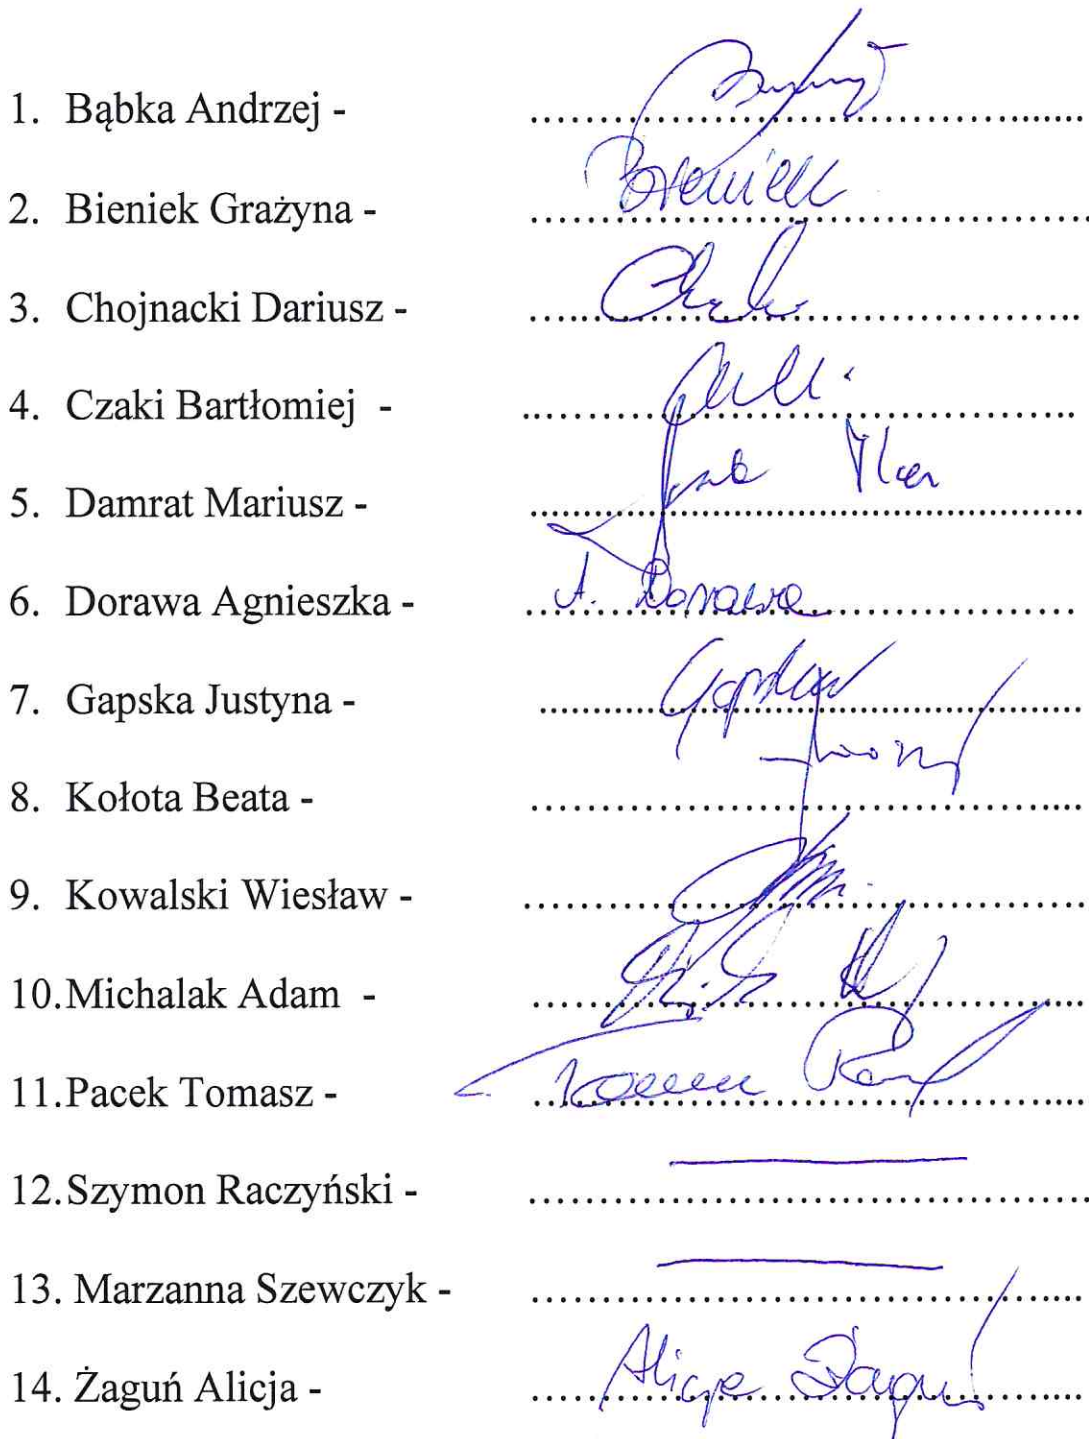 1. Bąbka Andrzej - ..............................
2. Bieniek Grażyna - .............................. Bieniek
3. Chojnacki Dariusz - ..............................
4. Czaki Bartłomiej - ..............................
5. Damrat Mariusz - ..............................
6. Dorawa Agnieszka - .............................. A. Dorawa
7. Gapska Justyna - .............................. Gapska
8. Kołota Beata - ..............................
9. Kowalski Wiesław - ..............................
10. Michalak Adam - ..............................
11. Pacek Tomasz - ..............................
12. Szymon Raczyński - ..............................
13. Marzanna Szewczyk - ..............................
14. Żaguń Alicja - .............................. Alicja Żaguń